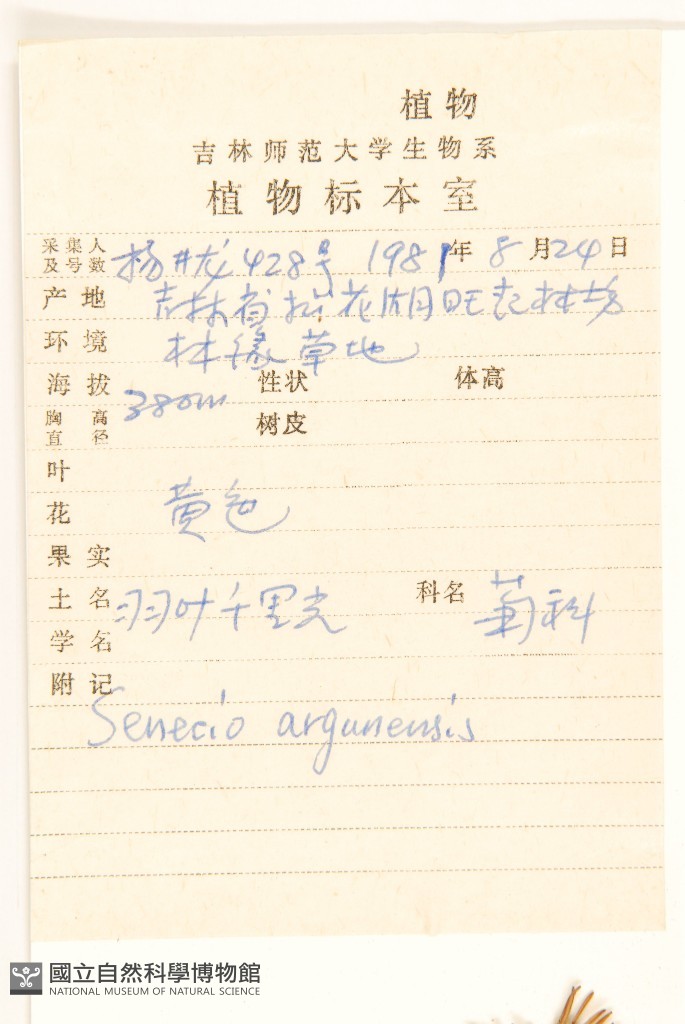 植物
吉林师范大学生物系
植物标本室
采集人及号数 杨井龙 428号 1981年8月24日
产地 吉林省 花湖旺起林场
环境 林缘草地
海拔 380m 性状 体高
胸高直径 树皮
叶
花 黄色
果实
土名 羽叶千里光 科名 菊科
学名
附记
Senecio argunensis
國立自然科學博物館
NATIONAL MUSEUM OF NATURAL SCIENCE